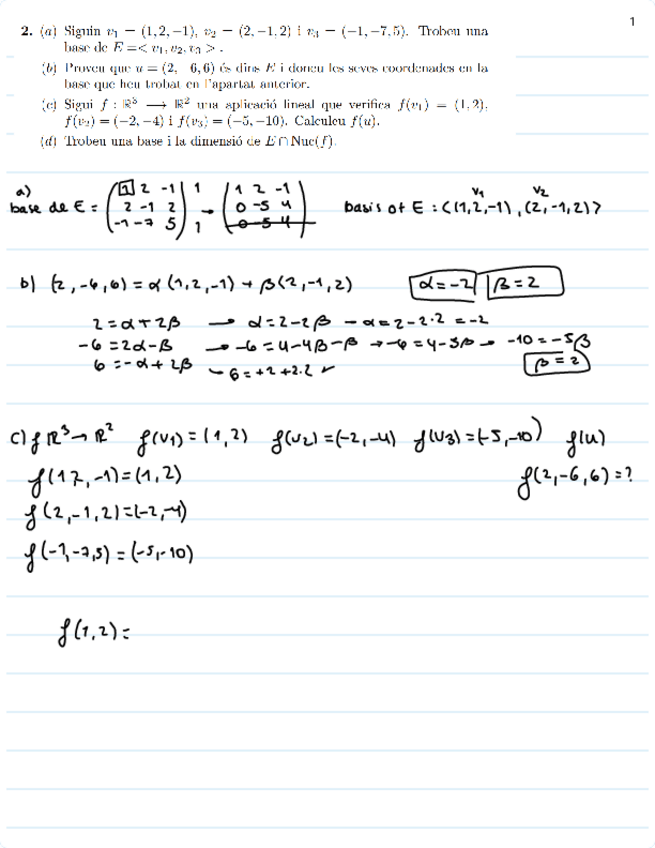 1
2. (a) Siguin v₁ = (1, 2, −1), v₂ = (2, −1, 2) i v₃ = (−1, −7, 5). Trobeu una
base de E =< v₁, v₂, v₃ > .
(b) Proveu que u = (2, 6, 6) és dins E i doneu les seves coordenades en la
base que heu trobat en l'apartat anterior.
(c) Sigui f : ℝ³ ⟶ ℝ² una aplicació lineal que verifica f(v₁) = (1, 2),
f(v₂) = (−2, −4) i f(v₃) = (−5, −10). Calculeu f(u).
(d) Trobeu una base i la dimensió de E ∩ Nuc(f).
a)
base de E = (1 2 -1 | 1 → (1 2 -1 basis of E : <(1,2,-1), (2,-1,2)>
2 -1 2 | 0 -5 4 v₁ v₂
-1 -7 5) | 1 0 -5 4)
b) (2,-6,6) = α (1,2,-1) + β (2,-1,2) α = -2 | β = 2
2 = α + 2β → α = 2-2β - α = 2-2·2 = -2
-6 = 2α - β → -6 = 4-4β-β → -6 = 4-5β → -10 = -5β
6 = -α + 2β → 6 = +2+2·2 ✓ β = 2
c) f ℝ³→ℝ² f(v₁) = (1,2) f(v₂) = (-2,-4) f(v₃) = (-5,-10) f(u)
f(1 2,-1) = (1,2) f(2,-6,6) = ?
f(2,-1,2) = (-2,-4)
f(-1,-7,5) = (-5,-10)
f(1,2) =